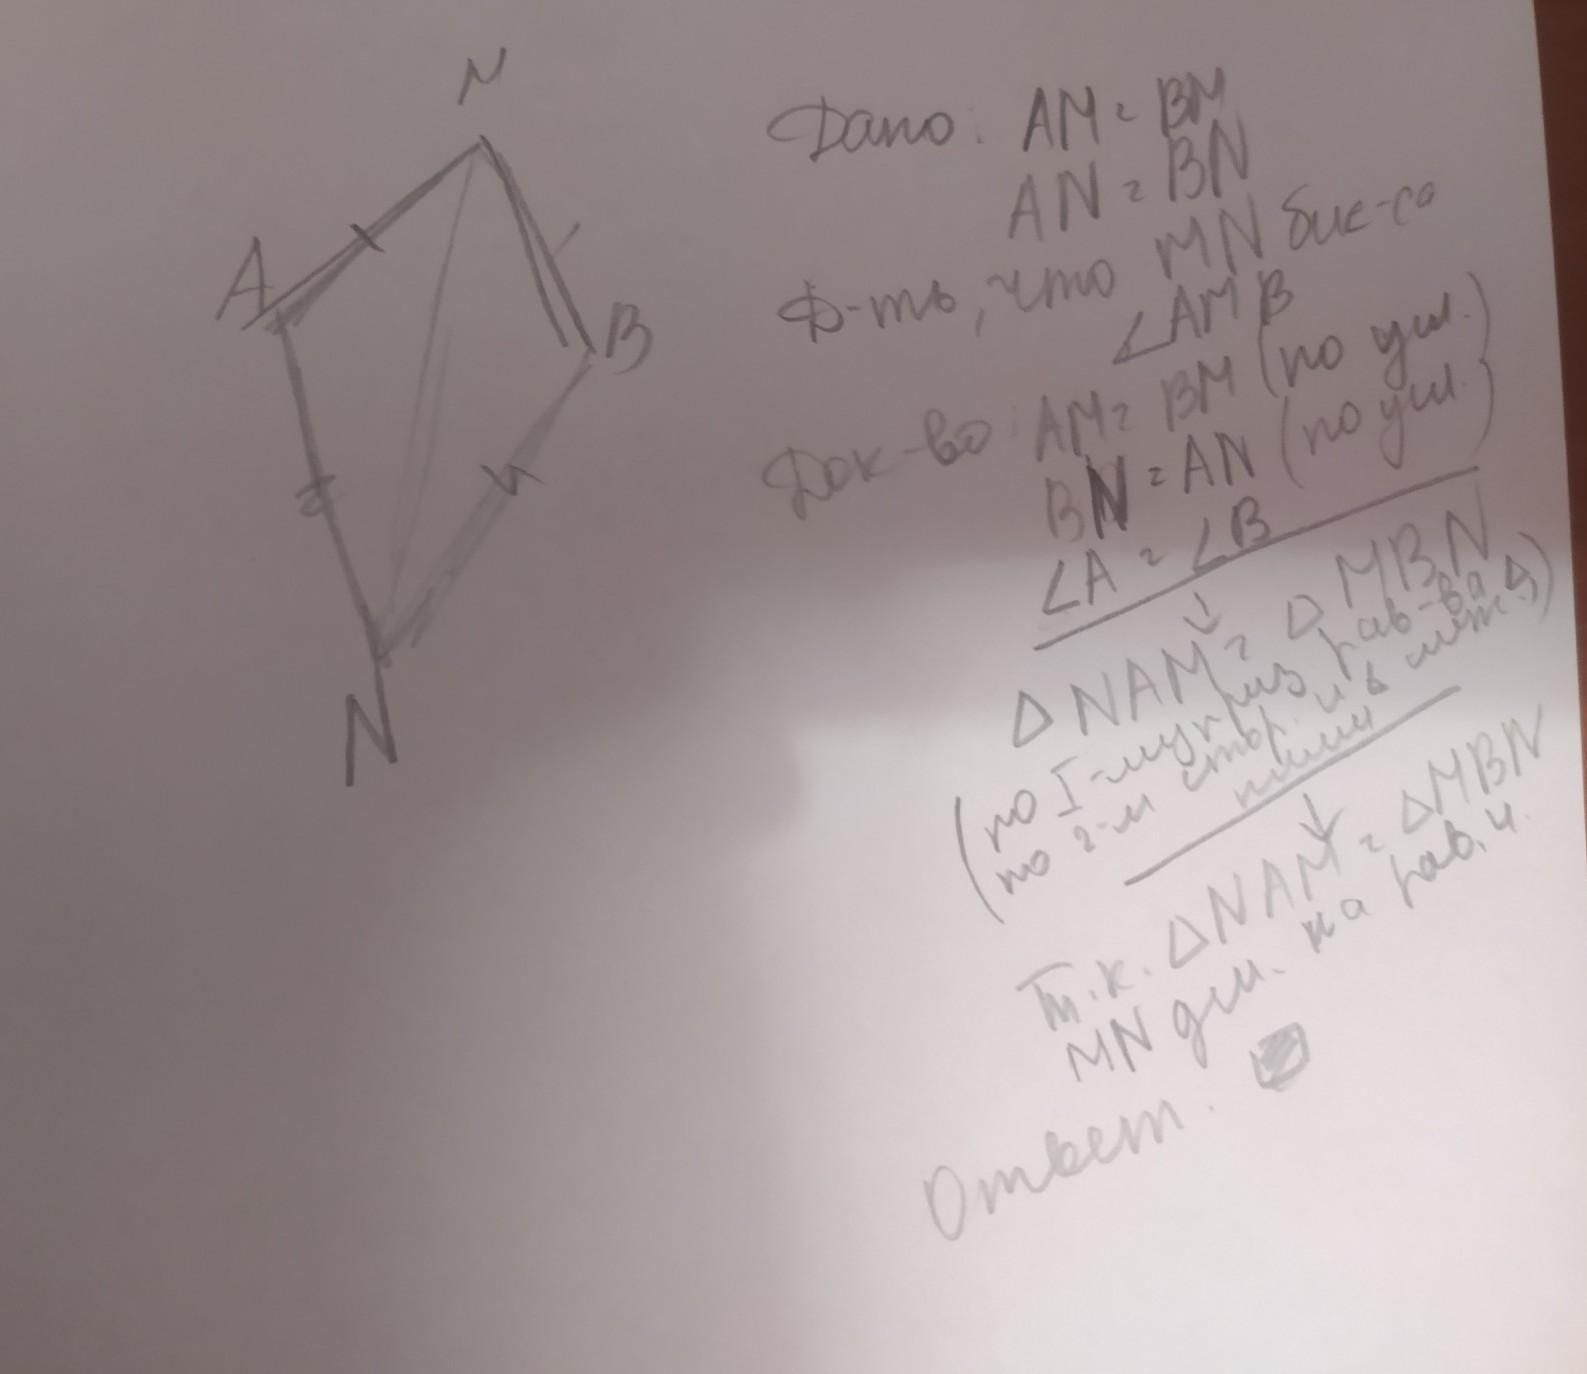 M
A
B
N
Дано: AM = BM
AN = BN
Д-ть, что MN бис-са
∠AMB
Док-во: AM = BM (по усл.)
BN = AN (по усл.)
∠A = ∠B
↓
△NAM = △MBN
(по I-му приз. рав-ва △)
по 2-м стор. и ∠ меж.
ними
↓
Т.к. △NAM = △MBN
MN дел. на рав. ч.
Ответ.